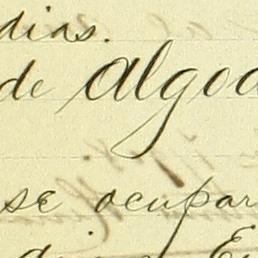 dias.
de algoda
se ocupar